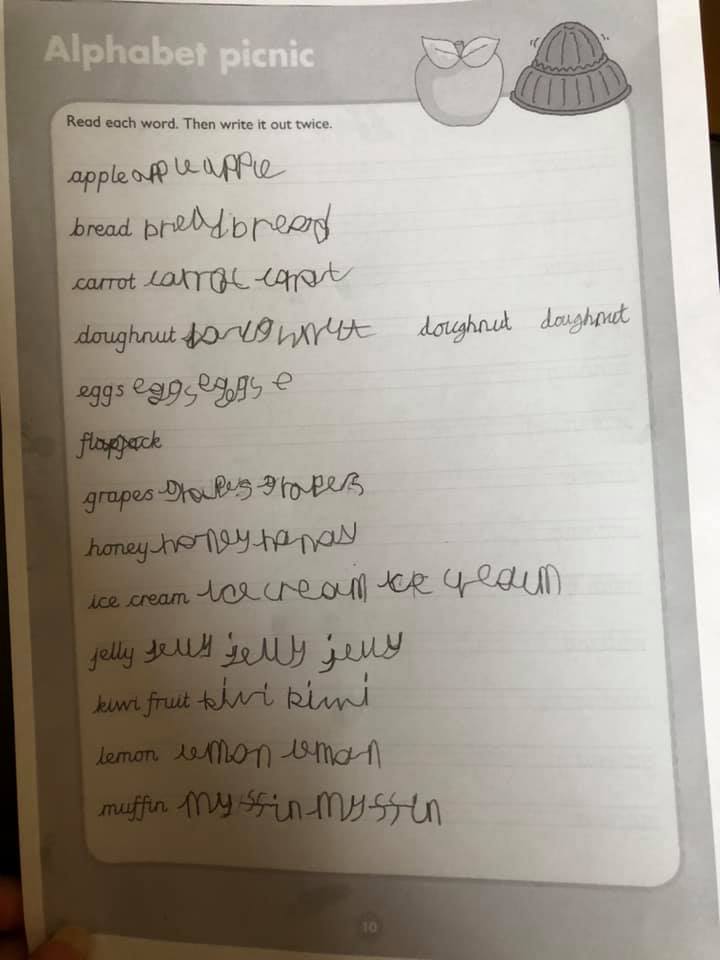 Alphabet picnic
Read each word. Then write it out twice.
apple apple apple
bread bread bread
carrot carrot carrot
doughnut doughnut doughnut doughnut
eggs eggs eggs e
flapjack
grapes grapes grapes
honey honey honay
ice cream ice cream ice cream
jelly jelly jelly jelly
kiwi fruit kiwi kiwi
lemon lemon lemon
muffin myffin myffin
10